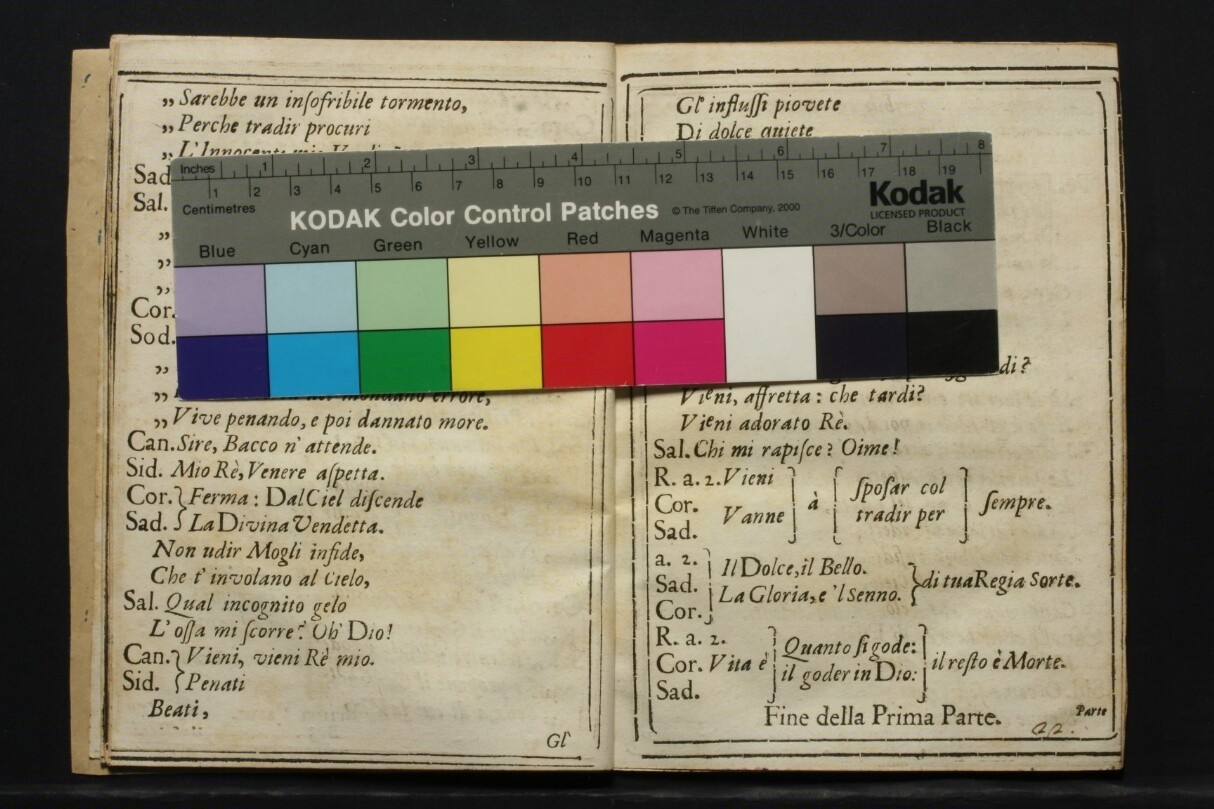 „ Sarebbe un inſofribile tormento,
„ Perche tradir procuri
„ L'Innocente
Sad
Sal.
„
„
„
Cor.
Sod.
„
„ mondano errore,
„ Vive penando, e poi dannato more.
Can. Sire, Bacco n'attende.
Sid. Mio Rè, Venere aſpetta.
Cor. } Ferma: Dal Ciel diſcende
Sad. { La Divina Vendetta.
Non udir Mogli infide,
Che t'involano al Cielo,
Sal. Qual incognito gelo
L'oſſa mi ſcorre? Oh' Dio!
Can. } Vieni, vieni Rè mio.
Sid. { Penati
Beati,
Gl'
Inches 1 2 3 4 5 6 7 8
1 2 3 4 5 6 7 8 9 10 11 12 13 14 15 16 17 18 19
Centimetres
KODAK Color Control Patches © The Tiffen Company, 2000
Kodak
LICENSED PRODUCT
Blue Cyan Green Yellow Red Magenta White 3/Color Black
Gl'influſſi piovete
Di dolce quiete
di?
Vieni, affretta: che tardi?
Vieni adorato Rè.
Sal. Chi mi rapiſce? Oime!
R. a. 2. Vieni
Cor.
Vanne } à { ſpoſar col
tradir per } ſempre.
Sad.
a. 2.
Sad.
Cor. } Il Dolce, il Bello.
La Gloria, e 'l Senno. } di tua Regia Sorte.
R. a. 2.
Cor. Vita è } Quanto ſi gode:
il goder in Dio: } il reſto è Morte.
Sad.
Fine della Prima Parte.
Parte